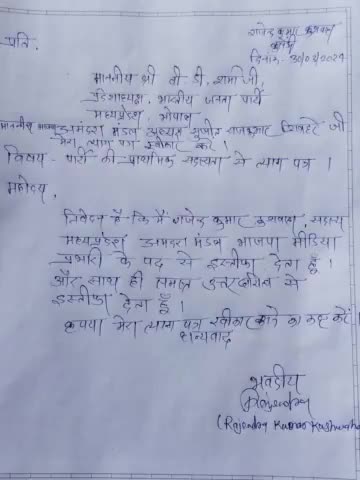 राजेन्द्र कुमार कुशवाह
दिनांक- 30/03/2024
प्रति,
माननीय श्री वी.डी. शर्मा जी,
प्रदेशाध्यक्ष, भारतीय जनता पार्टी
मध्यप्रदेश, भोपाल
माननीय भाजपा मंडल अध्यक्ष जी
मेरा त्याग पत्र स्वीकार करें।
विषय- पार्टी की प्राथमिक सदस्यता से त्याग पत्र।
महोदय,
निवेदन है कि मैं राजेन्द्र कुमार कुशवाह, सदस्य
मध्यप्रदेश मंडल भाजपा मीडिया
प्रभारी के पद से इस्तीफा देता हूँ।
और साथ ही समस्त उत्तरदायित्व से
इस्तीफा देता हूँ।
कृपया मेरा त्याग पत्र स्वीकार करने का कष्ट करें।
धन्यवाद
भवदीय
Rajendra
(Rajendra Kumar Kushwaha